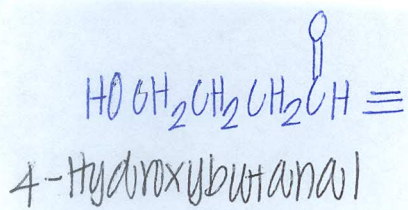 O
HOCH₂CH₂CH₂CH ≡
4-Hydroxybutanal